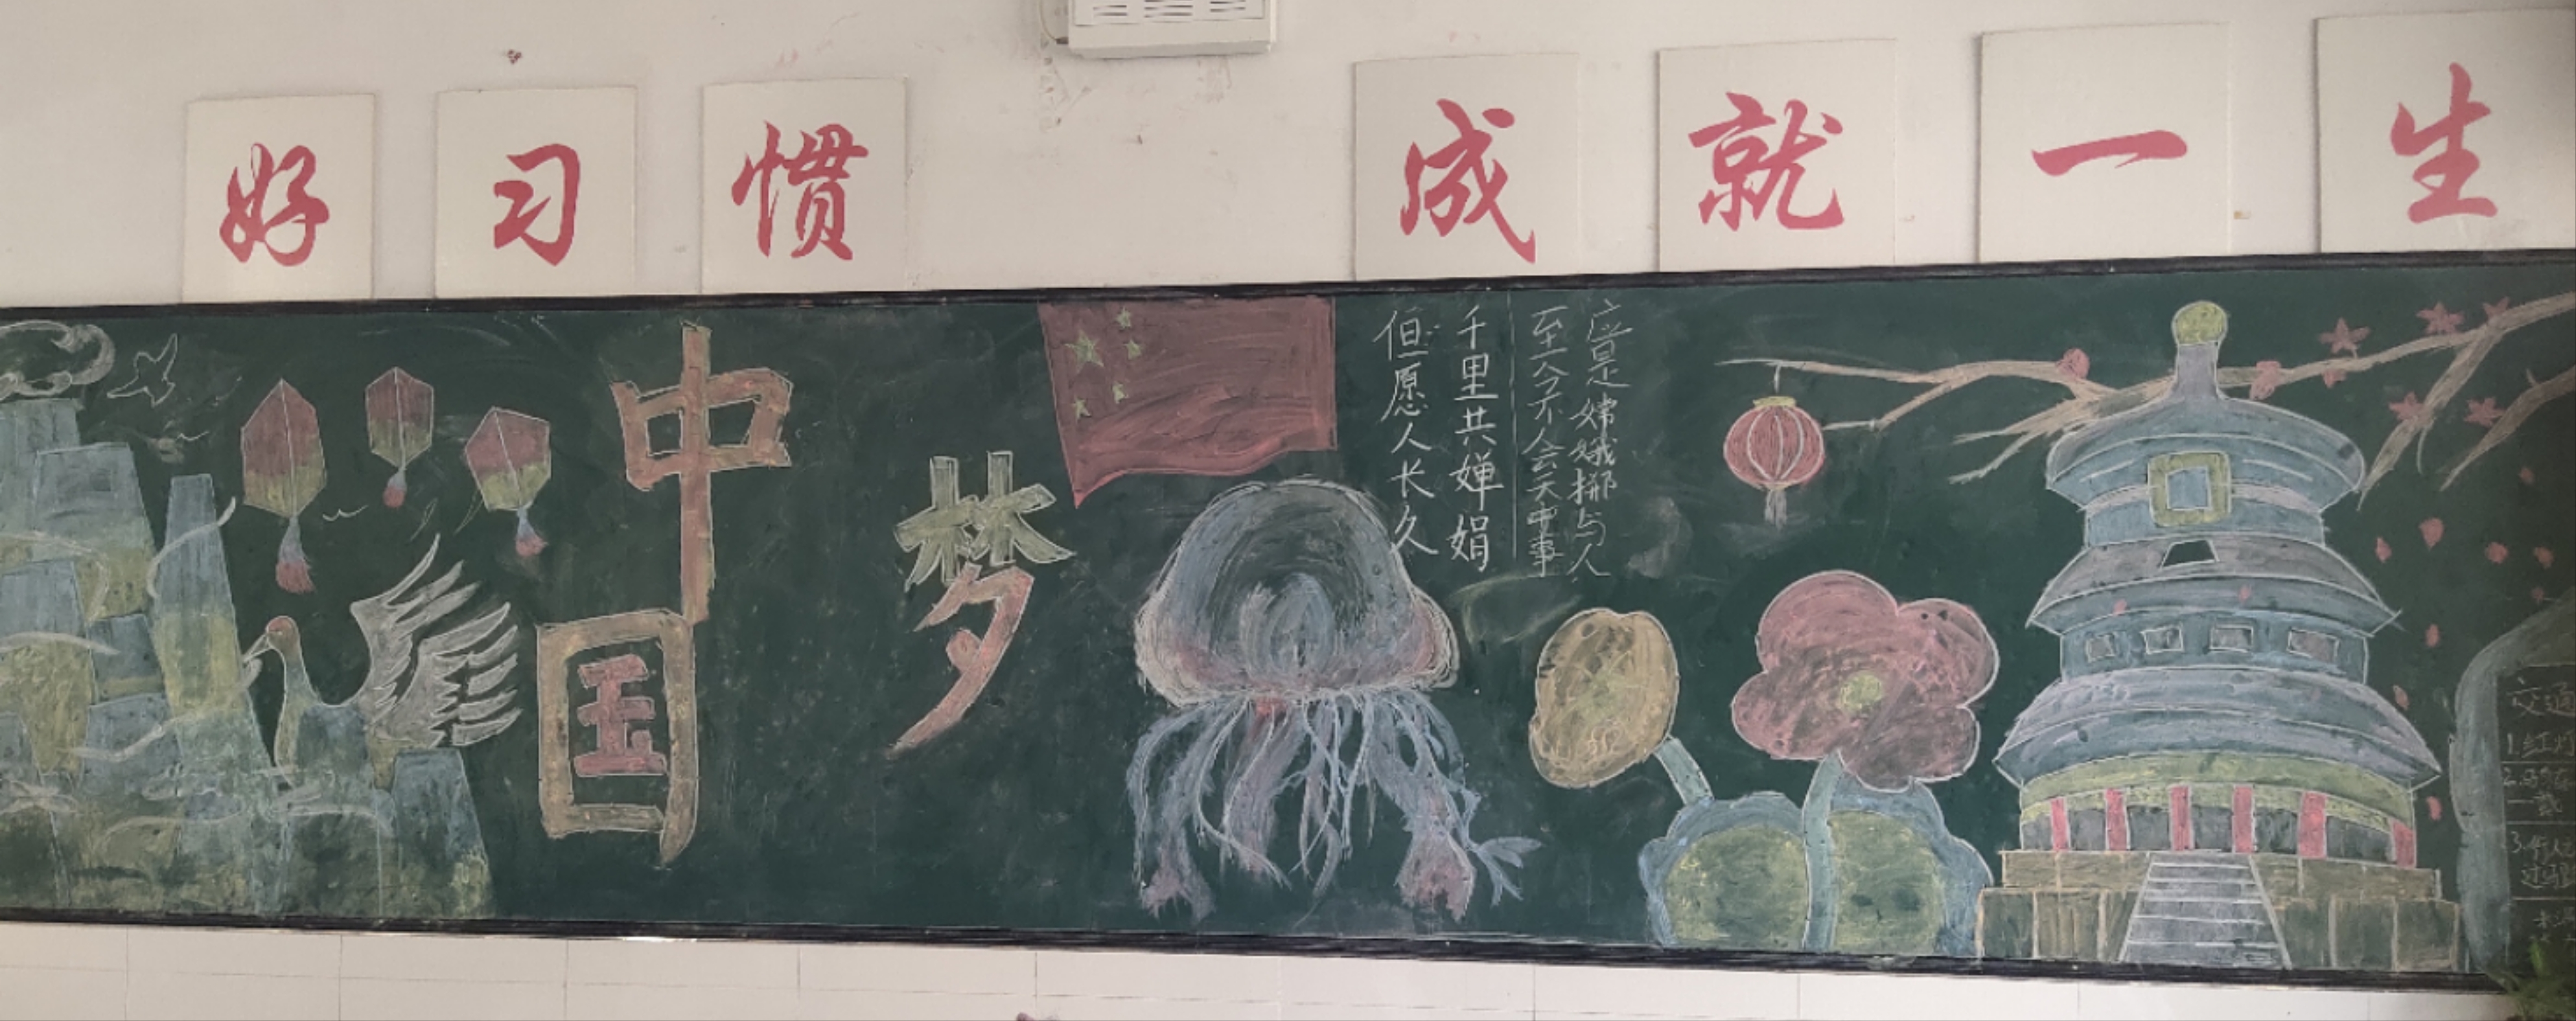 好习惯
成就一生
中国
梦
但愿人长久
千里共婵娟
至今不会天中事
应是嫦娥挪与人
交通
1.红
2.
3.
过